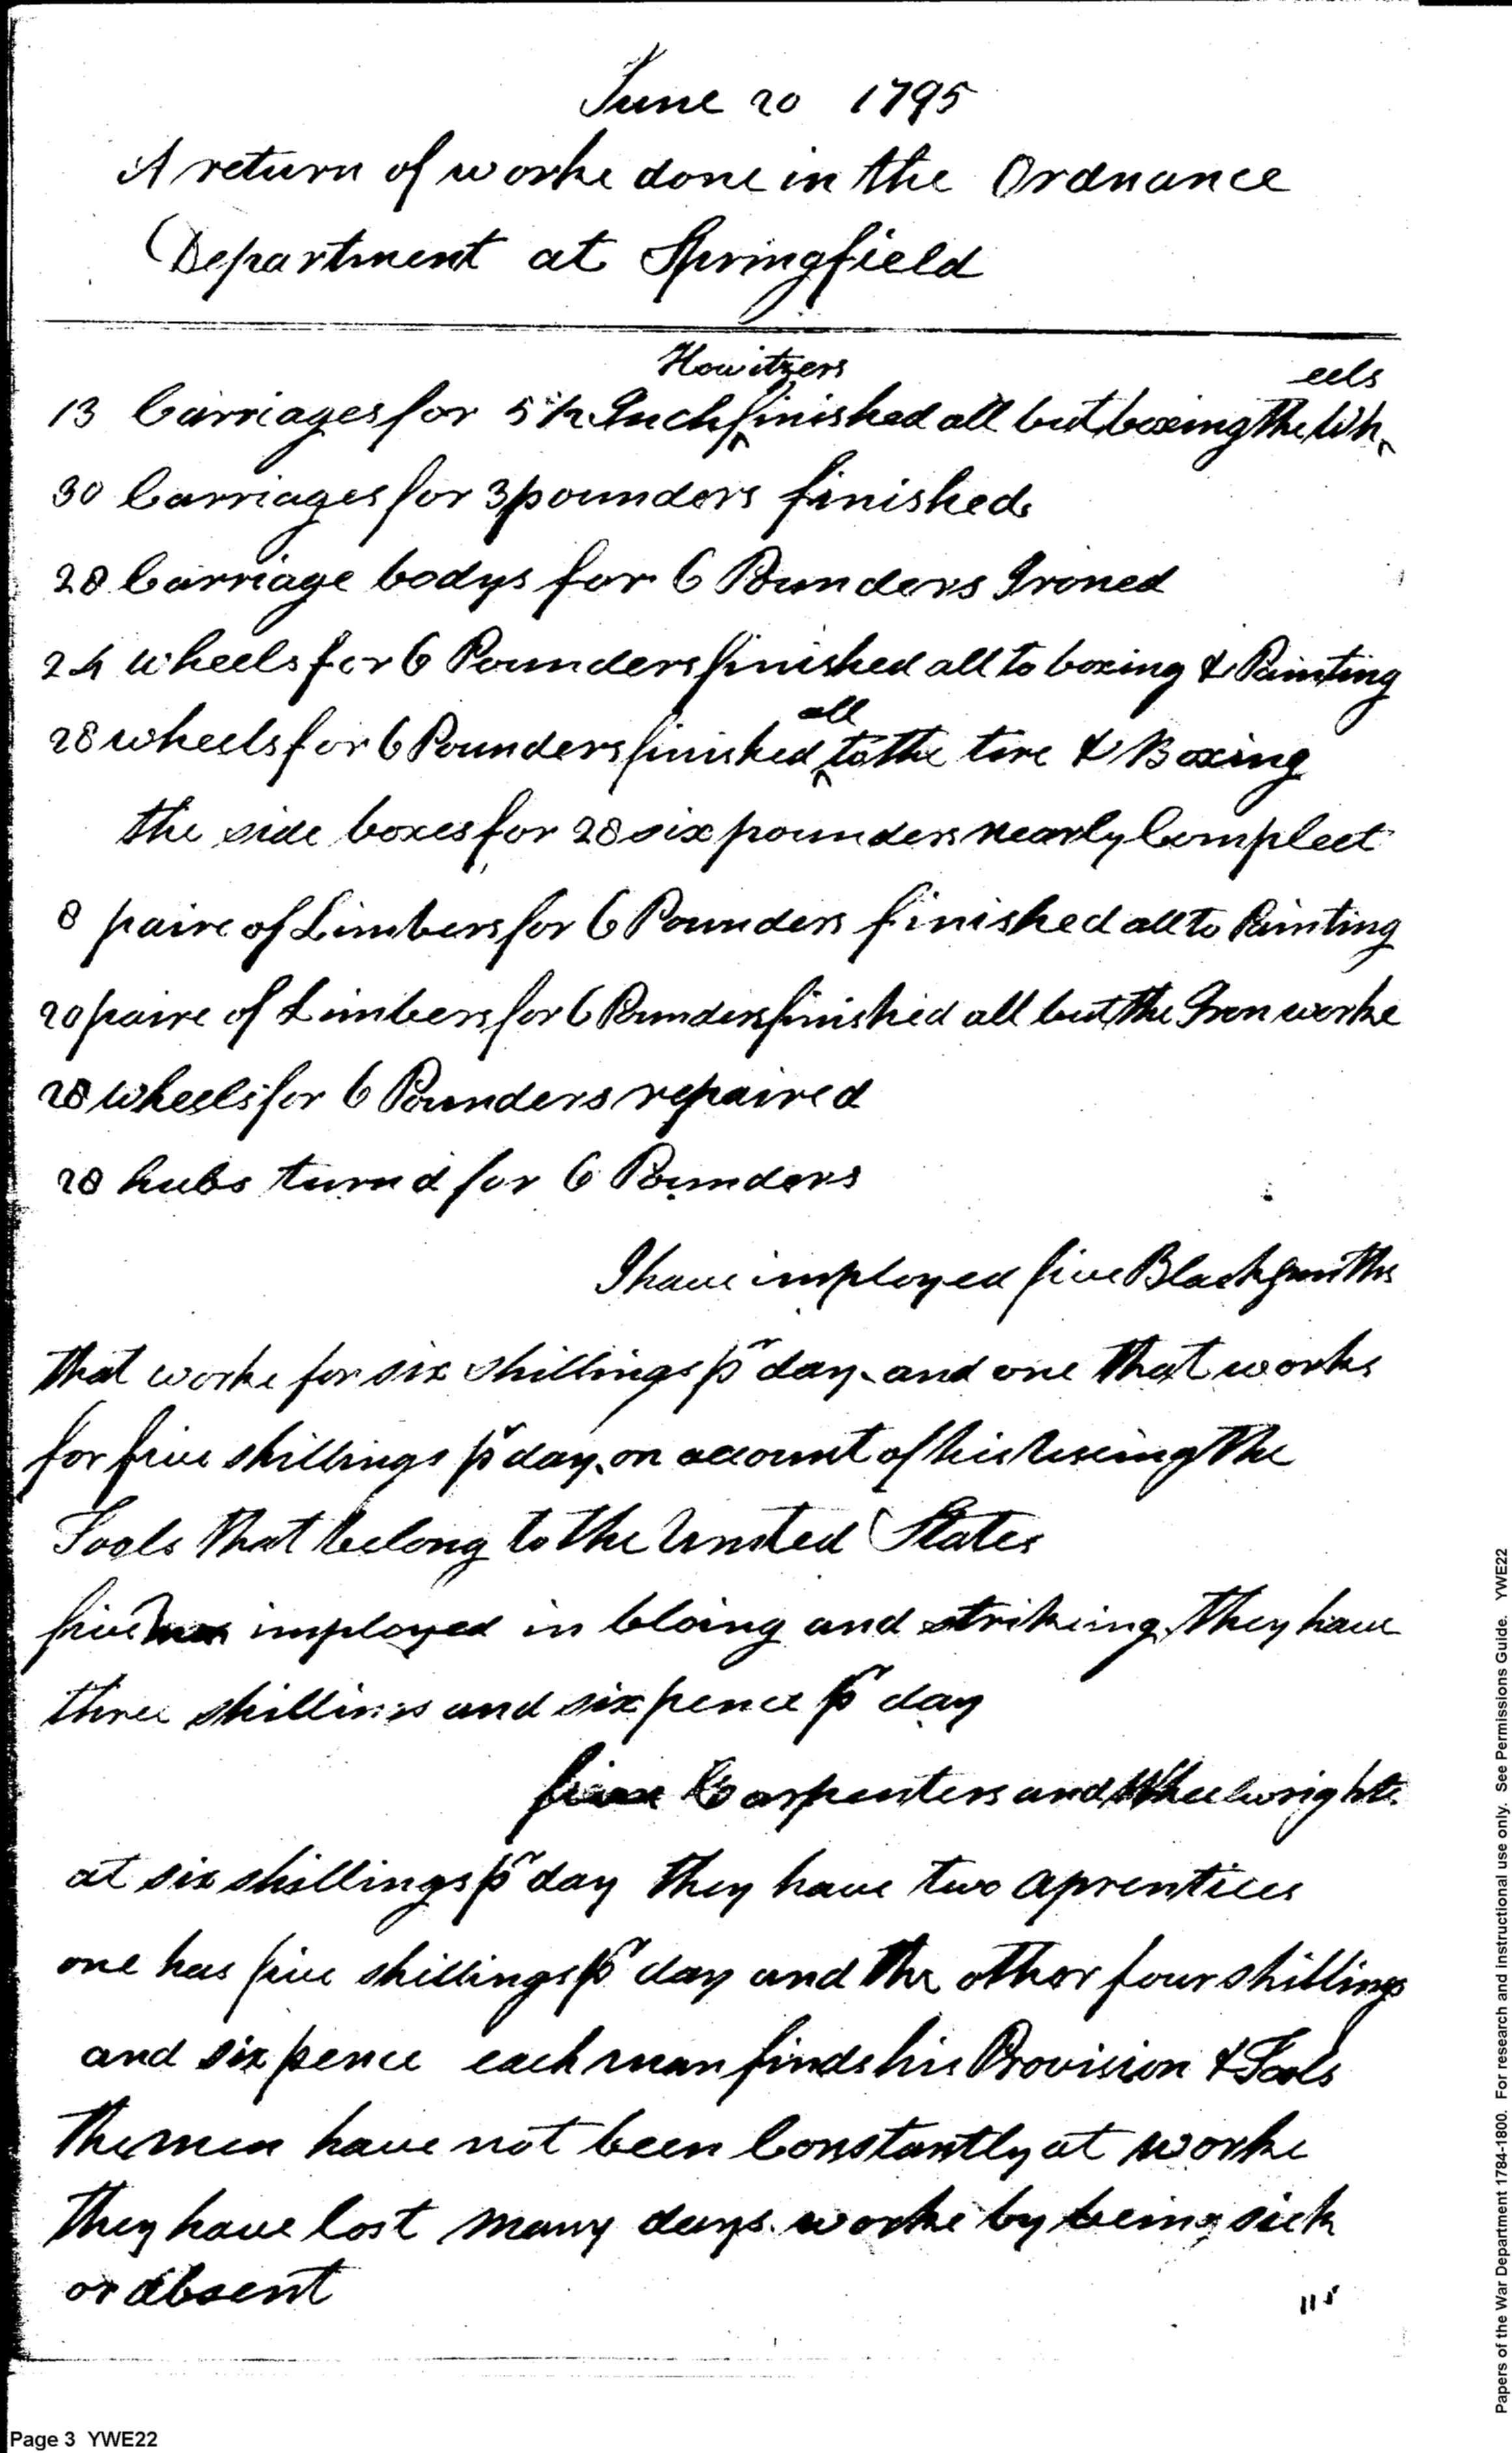 June 20 1795
A return of worke done in the Ordnance
Department at Springfield
Howitzers eels
13 Carriages for 5 1/2 Inch ^ finished all but boxing the Wh^
30 Carriages for 3 pounders finished
28 Carriage bodys for 6 Pounders Ironed
24 wheels for 6 Pounders finished all to boxing & Painting
all
28 wheels for 6 Pounders finished ^ to the tire & Boxing
the side boxes for 28 six pounders nearly Compleet
8 paire of Limbers for 6 Pounders finished all to Painting
20 paire of Limbers for 6 Pounders finished all but the Iron worke
28 wheels for 6 Pounders repaired
28 hubs turnd for 6 Pounders
I have imployed five Blacksmiths
that worke for six shillings pr day and one that works
for five shillings pr day on account of his useing the
Tools that belong to the United States
five men imployed in bloing and strikeing they have
three shillings and six pence pr day
five Carpenters and Wheelwrights
at six shillings pr day they have two aprentices
one has five shillings pr day and the other four shillings
and six pence each man finds his Provision & Tools
The men have not been Constantly at worke
they have lost many days worke by being sick
or absent
115
Page 3 YWE22
Papers of the War Department 1784-1800. For research and instructional use only. See Permissions Guide. YWE22